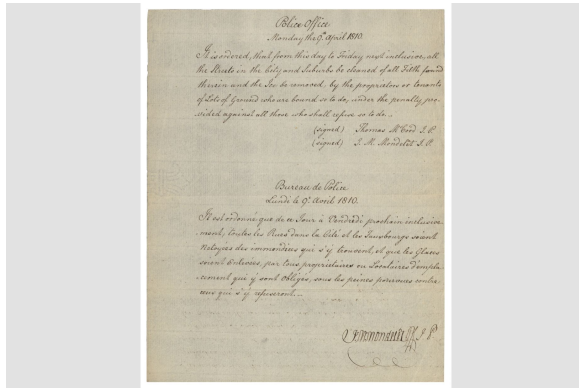 Police Office
Monday the 9th April 1810.
It is ordered, that from this day to Friday next inclusive, all
the Streets in the City and Suburbs be cleaned of all Filth found
therein and the Ice be removed, by the proprietors or tenants
of Lots of Ground who are bound so to do, under the penalty pro-
vided against all those who shall refuse so to do...
(signed) Thomas McCord J. P.
(signed) J. M. Mondelet J. P.
Bureau de Police
Lundi le 9e Avril 1810.
Il est ordonné que de ce Jour à Vendredi prochain inclusive-
ment, toutes les Rues dans la Cité et les Fauxbourgs soient
Netoyées des immondices qui s'y trouvent, et que les Glaces
soient Enlevées, par tous proprietaires ou Locataires d'empla-
cement qui y sont Obligés, sous les peines pourvues contre
ceux qui s'y refuseront...
JMMondelet J P